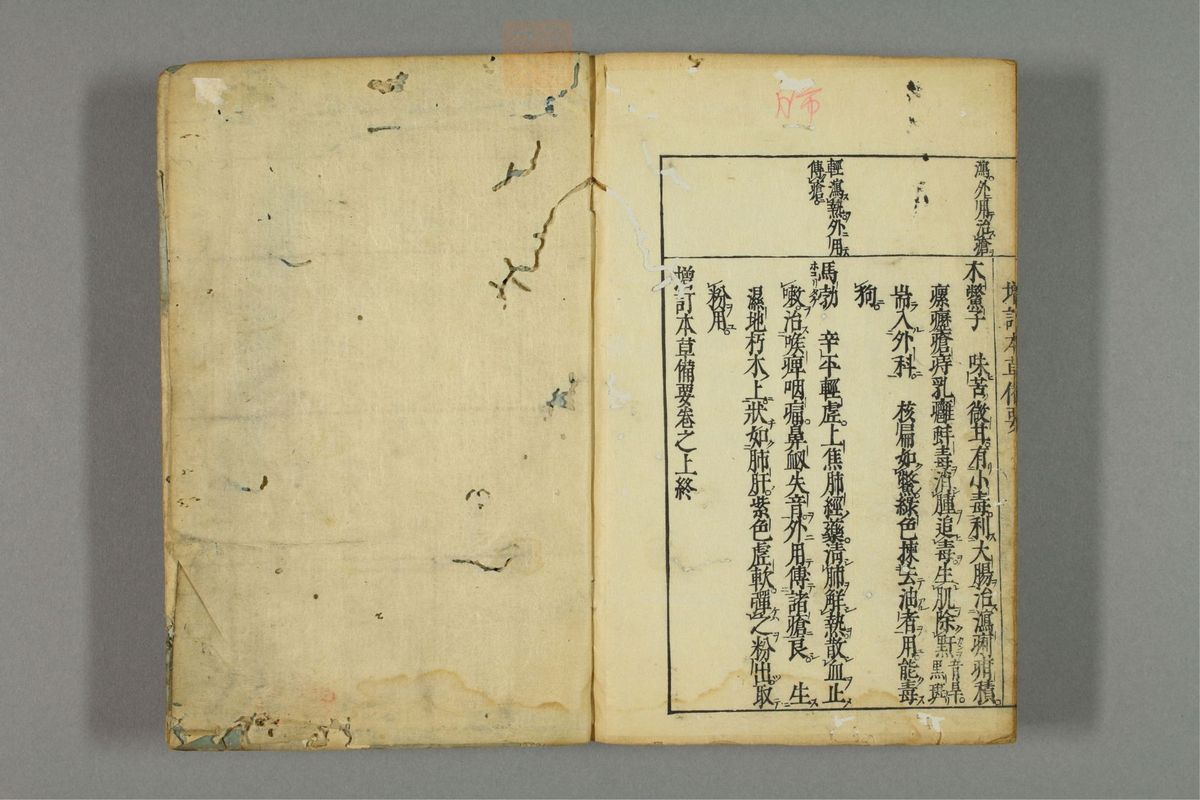 増訂本草備要
瀉外用治瘡
木鼈子 味苦微甘有小毒利大腸治瀉痢疳積
瘰癧瘡痔乳癰蚌毒消腫追毒生肌除䵟音旱黒斑
耑入外科 核扁如鼈綠色揀去油者用能毒
狗
輕瀉熱外用
傅瘡
馬勃 辛平輕虛上焦肺經藥清肺解熱散血止
嗽治喉痺咽痛鼻衂失音外用傅諸瘡良 生
濕地朽木上狀如肺肝紫色虛軟彈之粉出取
粉用
増訂本草備要卷之上終